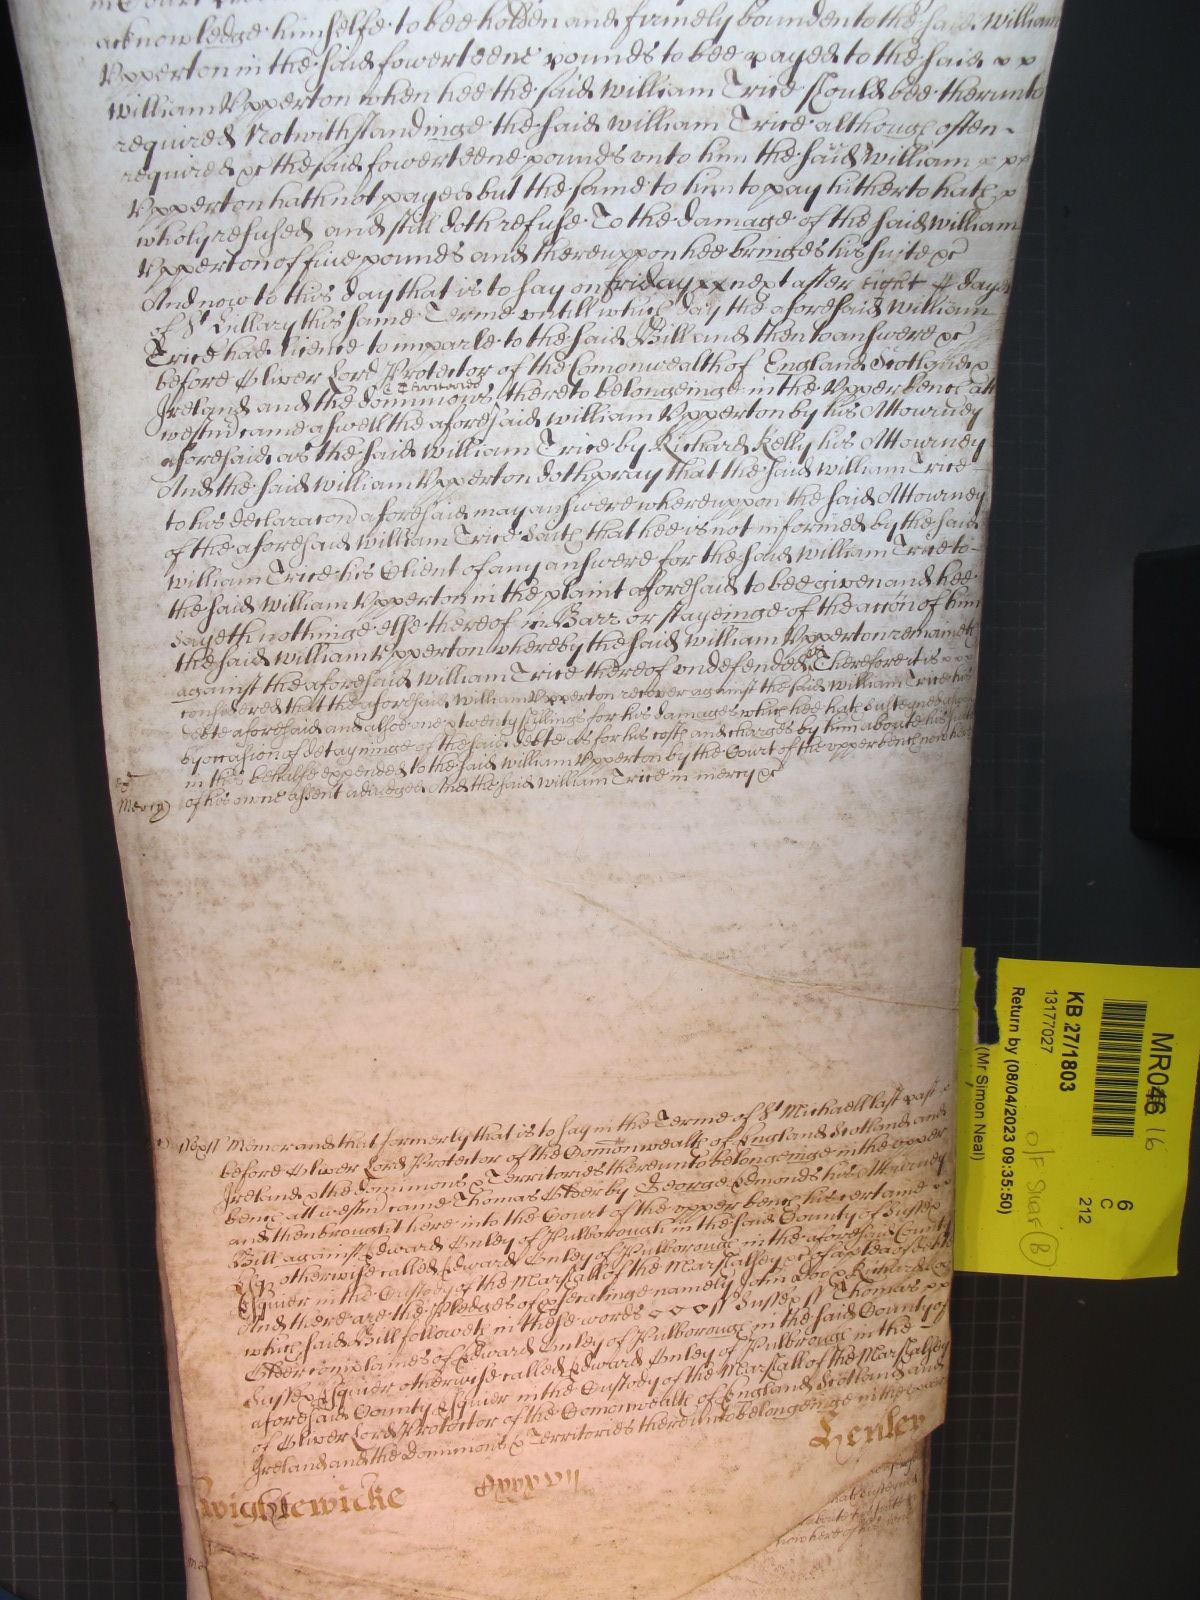 acknowledge himselfe to bee holden and firmely bounden to the said William
Vpperton in the said fowerteene pounds to bee payed to the said
William Vpperton when hee the said William Trice should bee therunto
required Notwithstandinge the said William Trice although often
required &c the said fowerteene pounds vnto him the said William
Vpperton hath not payed but the same to him to pay hitherto hath
wholy refused and still doth refuse To the damage of the said William
Vpperton of fiue pounds and thereuppon hee bringes his suite &c
And now to this day that is to say on friday next after eight days
of St Hillary this same Terme vntill which day the aforesaid William
Trice had licence to imparle to the said Bill and then to answere &c
before Oliver Lord Protector of the Comonwealth of England Scotland
& Territories
Ireland and the dominions thereto belongeinge in the Vpper bench att
westm came aswell the aforesaid William Vpperton by his Attourney
aforesaid as the said William Trice by Richard Kelly his Attourney
And the said William Vpperton doth pray that the said William Trice
to his declaracon aforesaid may answere whereuppon the said Attourney
of the aforesaid William Trice saith that hee is not informed by the said
William Trice his Client of any answere for the said William Trice to
the said William Vpperton in the plaint aforesaid to bee given and hee
sayeth nothinge else thereof in Barr or stayeinge of the accon of him
the said William Vpperton whereby the said William Vpperton remaineth
against the aforesaid William Trice thereof vndefended &c Therefore it is
considered that the aforesaid William Vpperton recover against the said William Trice his
debte aforesaid and alsoe one & twenty shillings for his damages which hee hath susteyned
by occasion of detayninge of the said debte as for his costs and charges by him aboute his suite
in this behalfe expended to the said William Vpperton by the Court of the vpper bench now here
of his owne assent adiudged And the said William Trice in mercy &c
Mercy
Sussex ss Memorand that formerly that is to say in the Terme of St Michaell last past
before Oliver Lord Protector of the Comonwealth of England Scotland and
Ireland & the dominions & Territories thereunto belongeinge in the vpper
bench att westm came Thomas by George Edmonds his Attourney
and then brought here into the Court of the vpper bench his certaine
Bill against Edward Onley of Pulborough in the said County of Sussex
Esq otherwise called Edward Onley of Pulborough in the aforesaid County
Esquier in the Custody of the Marshall of the Marshalsey &c of a plea of debte
And there are the Pledges of prosecutinge namely John Doo & Richard Roo
which said Bill followeth in these words ss Sussex ss Thomas
complaines of Edward Onley of Pulborough in the said County of
Sussex Esquier otherwise called Edward Onley of Pulborough in the
aforesaid County Esquier in the Custody of the Marshall of the Marshalsey
of Oliver Lord Protector of the Comonwealth of England Scotland and
Ireland and the Dominions & Territories thereunto belongeinge in the vpper
Henley
Wightewicke
MR046 16
6
C
212
KB 27/1803
13177027
Return by (08/04/2023 09:35:50)
(Mr Simon Neal)
O/F Staff B